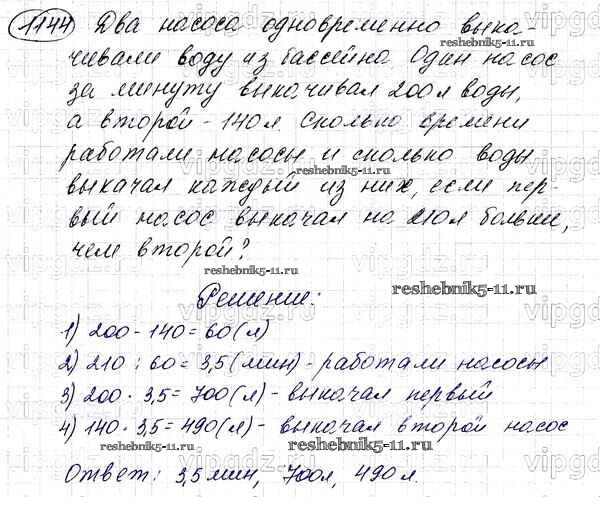 1144 Два насоса одновременно выка-
reshebnik5-11.ru
чивали воду из бассейна. Один насос
за минуту выкачивал 200л воды,
а второй - 140л. Сколько времени
работали насосы и сколько воды
reshebnik5-11.ru
выкачал каждый из них, если пер-
вый насос выкачал на 210л больше,
чем второй?
reshebnik5-11.ru
Решение:
reshebnik5-11.ru
1) 200 - 140 = 60 (л)
2) 210 : 60 = 3,5 (мин) - работали насосы
3) 200 · 3,5 = 700 (л) - выкачал первый
4) 140 · 3,5 = 490 (л) - выкачал второй насос
reshebnik5-11.ru
reshebnik5-11.ru
Ответ: 3,5 мин, 700л, 490л.